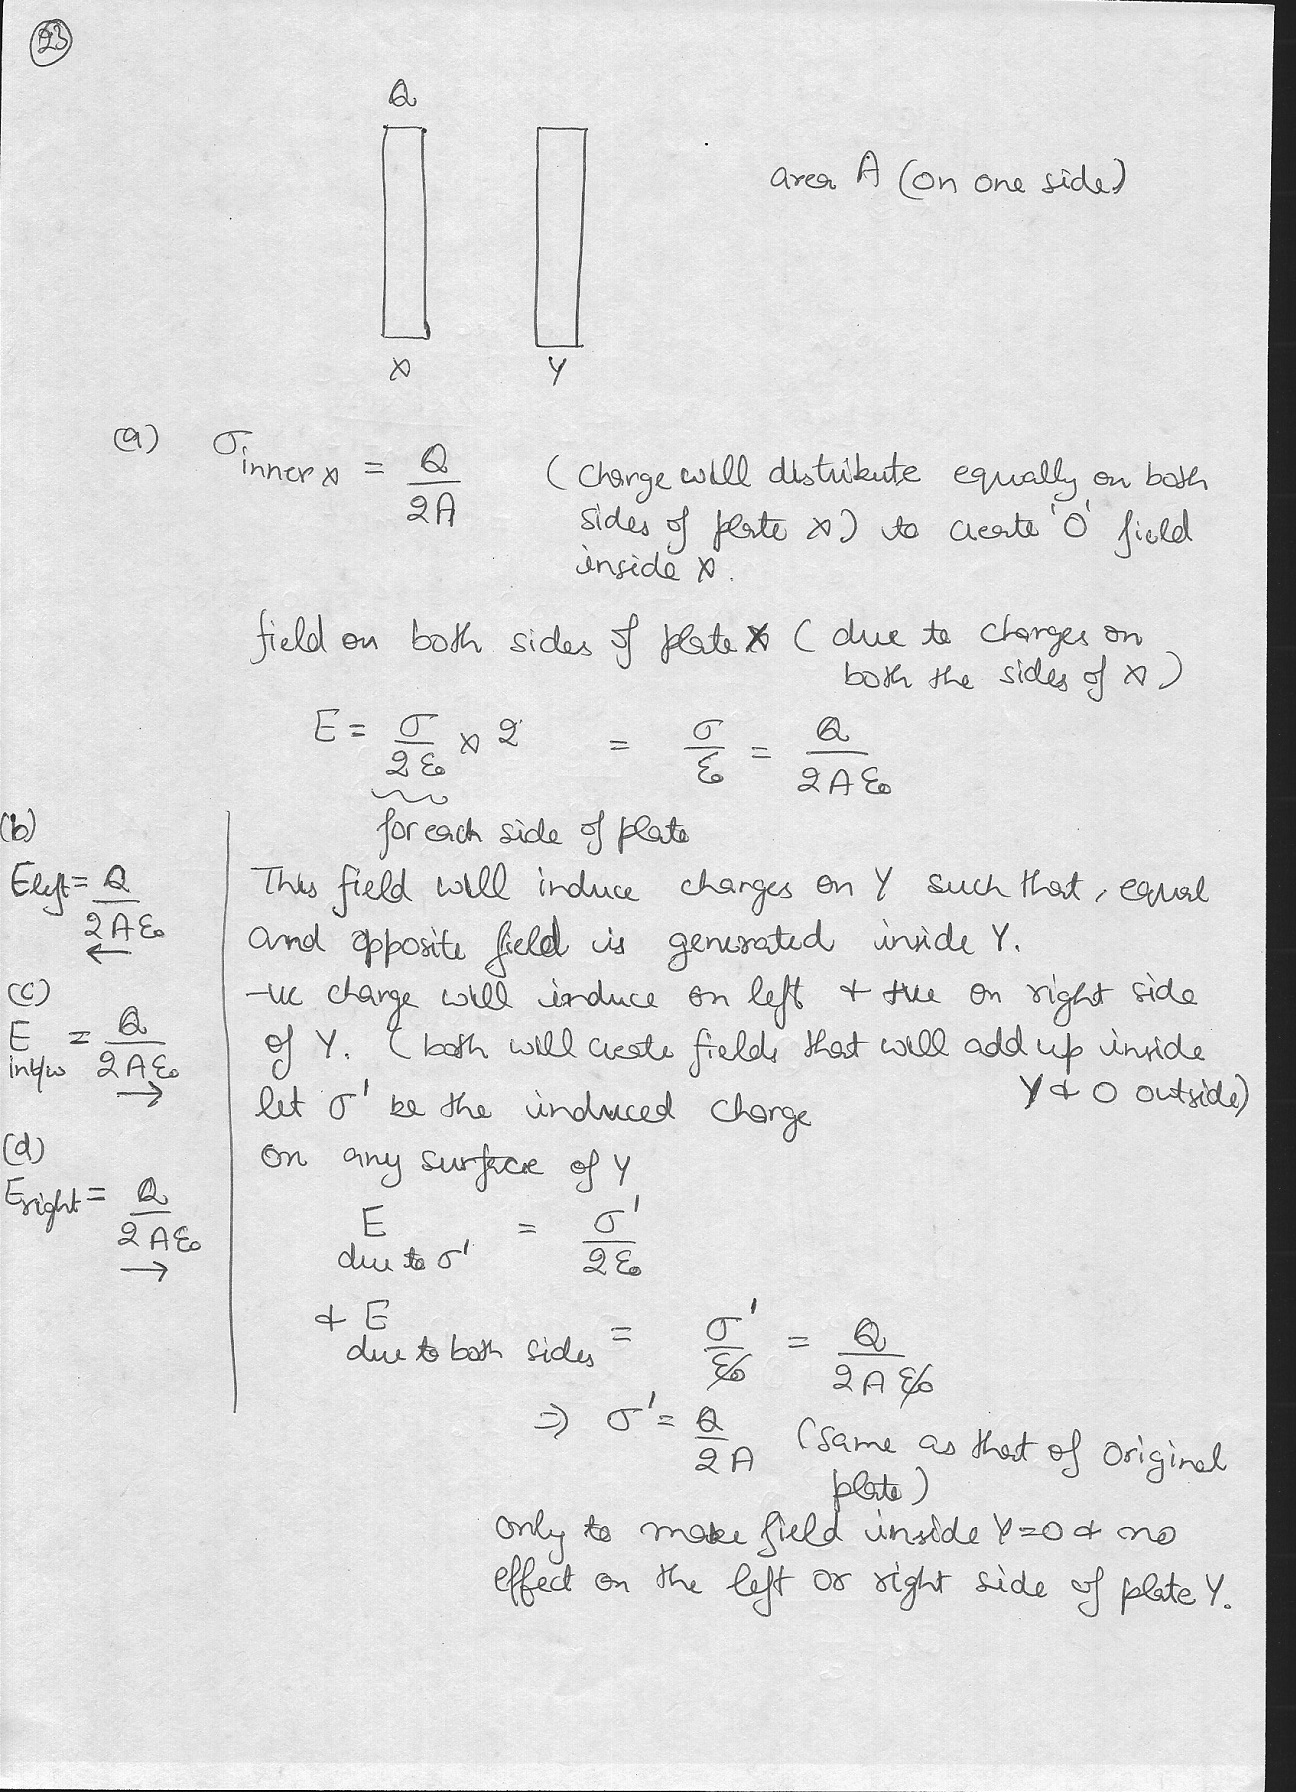 23
Q
area A (on one side)
X Y
(a) σ inner X = Q / 2A (charge will distribute equally on both
sides of plate X) to create '0' field
inside X.
field on both sides of plate X (due to charges on
both the sides of X)
E = σ / 2ε₀ × 2 = σ / ε₀ = Q / 2Aε₀
for each side of plate
(b)
E left = Q / 2Aε₀
←
(c)
E in b/w = Q / 2Aε₀
→
(d)
E right = Q / 2Aε₀
→
This field will induce charges on Y such that, equal
and opposite field is generated inside Y.
-ve charge will induce on left & +ve on right side
of Y. (both will create fields that will add up inside
Y & 0 outside)
let σ' be the induced charge
on any surface of Y
E due to σ' = σ' / 2ε₀
& E due to both sides = σ' / ε₀ = Q / 2Aε₀
⇒ σ' = Q / 2A (same as that of original
plate)
only to make field inside Y=0 & no
effect on the left or right side of plate Y.